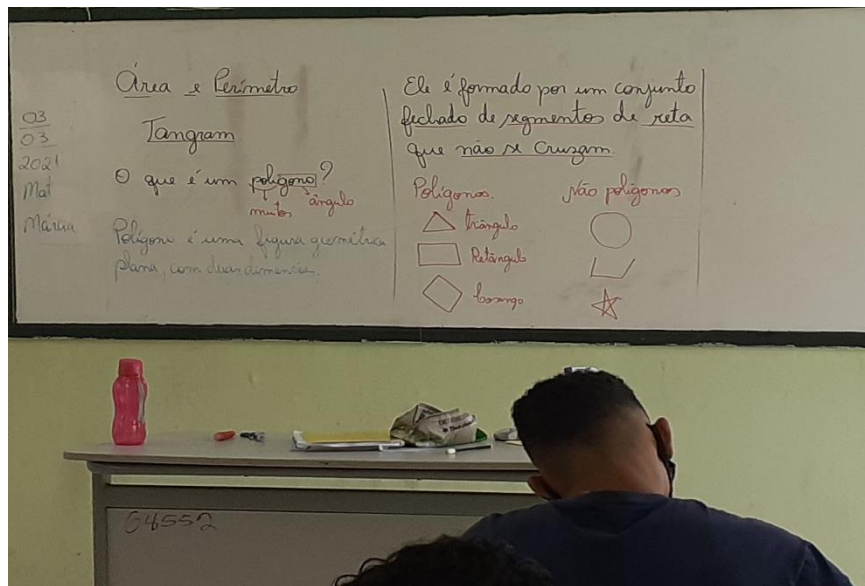 03
03
2021
Mat
Márcia
Área e Perímetro
Tangram
O que é um polígono?
muitos ângulo
Polígono é uma figura geométrica
plana, com duas dimensões.
Ele é formado por um conjunto
fechado de segmentos de reta
que não se cruzam.
Polígonos.
triângulo
Retângulo
Losango
Não polígonos
64552